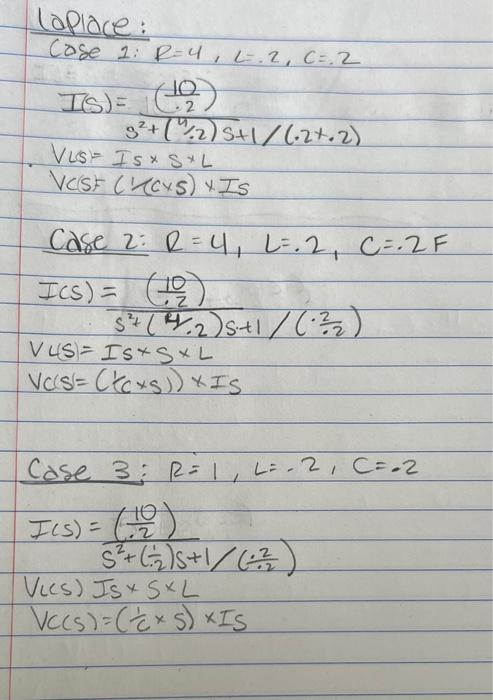 Laplace:
Case 1: R=4, L=.2, C=.2
I(S)= (10/.2)
S²+(4/.2)S+1/(.2*.2)
VLS= Is * S * L
VC(S)= (1/C*S) * Is
Case 2: R=4, L=.2, C=.2 F
I(S)= (10/.2)
S²+(4/.2)S+1/(.2/.2)
VL(S)= Is * S * L
VC(S)= (1/C*S)) * Is
Case 3: R=1, L=.2, C=.2
I(S) = (10/.2)
S²+(1/.2)S+1/(.2/.2)
VL(S) Is * S * L
VC(S)=(1/C * S) * Is